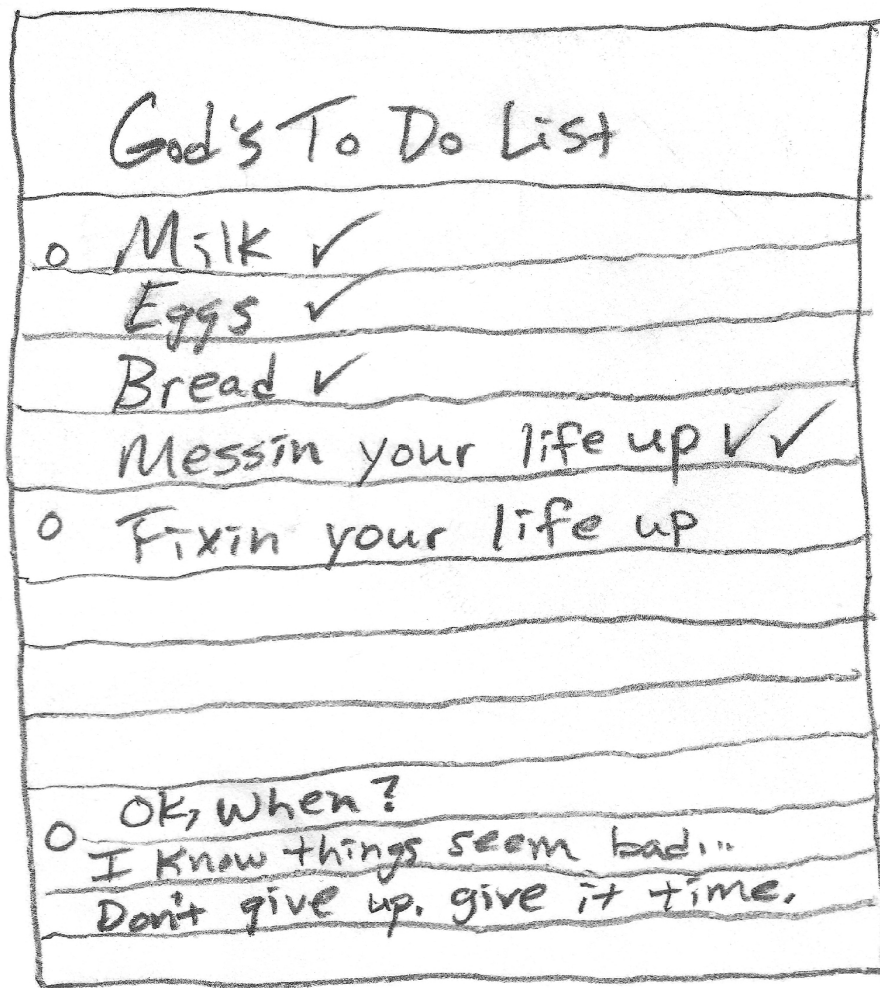 God's To Do List
Milk ✓
Eggs ✓
Bread ✓
Messin your life up ✓✓
Fixin your life up
Ok, when?
I know things seem bad...
Don't give up. give it time.